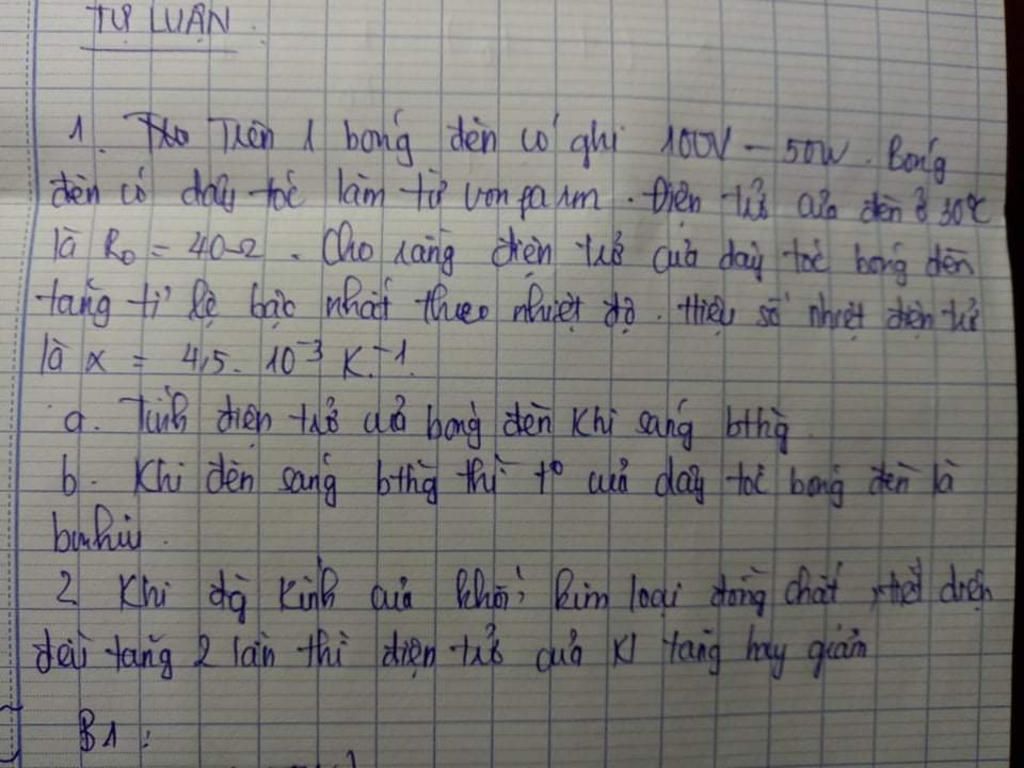 TỰ LUẬN.
1. Trên 1 bóng đèn có ghi 100V - 50W. Bóng
đèn có dây tóc làm từ vonfam. Điện trở của đèn ở 30°C
là R₀ = 40Ω. Cho rằng điện trở của dây tóc bóng đèn
tăng tỉ lệ bậc nhất theo nhiệt độ. Hiệu số nhiệt điện trở
là α = 4,5. 10⁻³ K⁻¹.
a. Tính điện trở của bóng đèn khi sáng bthg
b. Khi đèn sáng bthg thì t° của dây tóc bóng đèn là
bnhiu.
2 Khi đg kính của khối kim loại đồng chất, tiết diện
đều tăng 2 lần thì điện trở của Kl tăng hay giảm
B1: